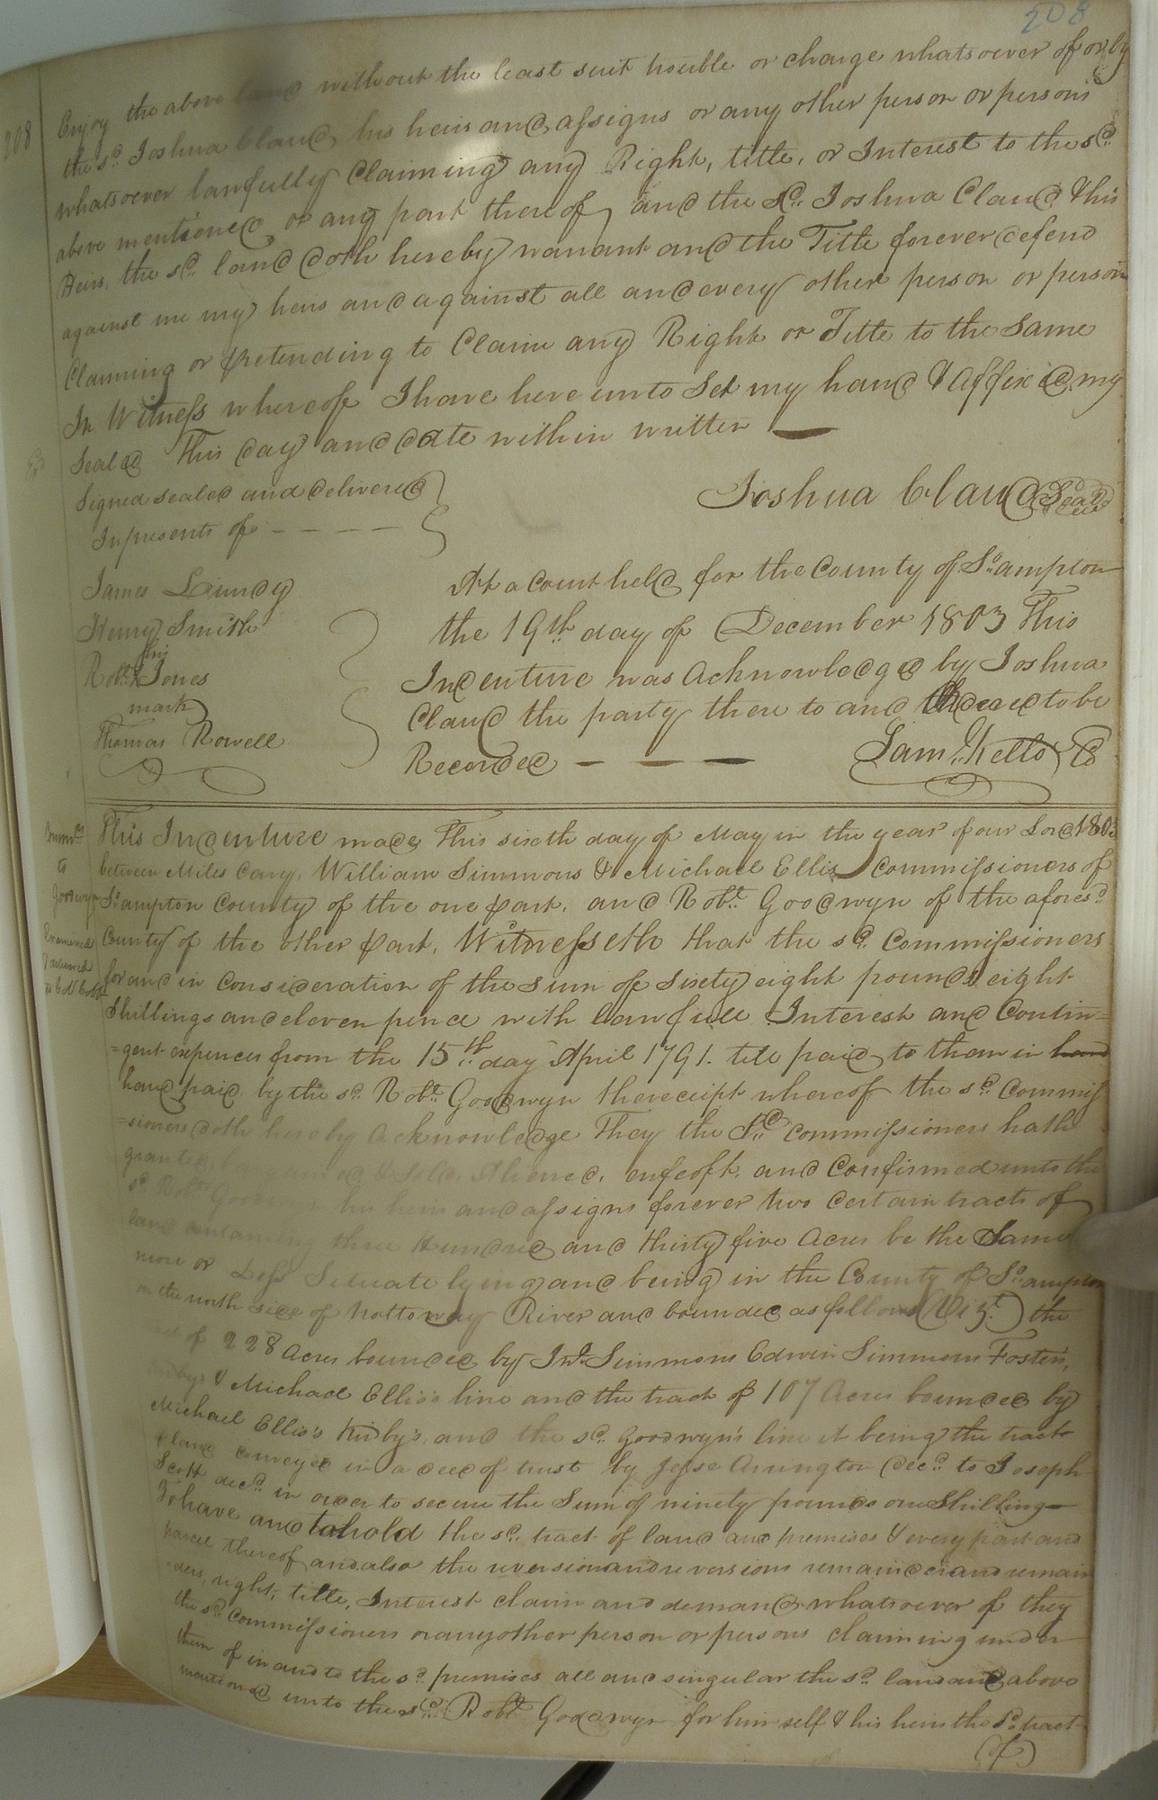 208
208
Enjoy the above land without the least suit trouble or charge whatsoever of or by
the sd. Joshua Claud, his heirs and assigns or any other person or persons
whatsoever lawfully Claiming any Right, title, or Interest to the sd.
above mentioned or any part thereof, and the sd. Joshua Claud & his
Heirs, the sd. land doth hereby warrant and the Title forever defend
against me my heirs and against all and every other person or persons
Claiming or pretending to Claim any Right or Title to the Same
In Witness whereof I have here unto Set my hand & Affixed my
Seal This day and date within written
Signed sealed and delivered
In presents of - - - -
Joshua Claud Seal
James Lundy
Henry Smith
his
Robt. X Jones
mark
Thomas Rowell
At a Court held for the County of So.ampton
the 19th day of December 1803 This
Indenture was Acknowledged by Joshua
Claud the party there to and Ordered to be
Recorded - - -
Saml. Kello Cl
to
Goodwyn
Examined
This Indenture made This sixth day of May in the year of our Lord 1803
between Miles Cary, William Simmons & Michael Ellis Commissioners of
So.ampton County of the one part, and Robt. Goodwyn of the aforesd.
County of the other part, Witnesseth that the sd. Commissioners
for and in Consideration of the Sum of Sixty eight pounds eight
Shillings and eleven pence with lawfull Interest and Contin=
=gent expences from the 15th day April 1791. till paid to them in hand
hand paid by the sd. Robt. Goodwyn the receipt whereof the sd. Commis
=sioners doth hereby Acknowledge They the Sd. Commissioners hath
granted, bargained & Sold, Aliened, enfeoft, and Confirmed unto the
sd. Robt. Goodwyn his heirs and assigns forever two Certain tracts of
land containing three Hundred and thirty five Acres be the Same
more or Less Situate lying and being in the County of So.ampton
on the north side of Nottoway River and bounded as follows (Vizt.) the
of 228 Acres bounded by Jno. Simmons Edwin Simmons Foster's,
Kirby's & Michael Ellis's line and the tract of 107 Acres bounded by
Michael Ellis's Kirby's, and the sd. Goodwyn's line it being the tracts
of land conveyed in a deed of trust by Jesse Arrington Decd. to Joseph
Scott decd. in order to secure the Sum of ninety pounds one Shilling
To have and to hold the sd. tract of land and premises & every part and
parcel thereof and also the reversion and reversions remainder and remain
=ders, right, title, Interest claim and demand whatsoever of they
the sd. Commissioners or any other person or persons claiming under
them of in and to the sd. premises all and singular the sd. land above
mentioned unto the sd. Robt. Goodwyn for him self & his heirs the sd. tract
(of)